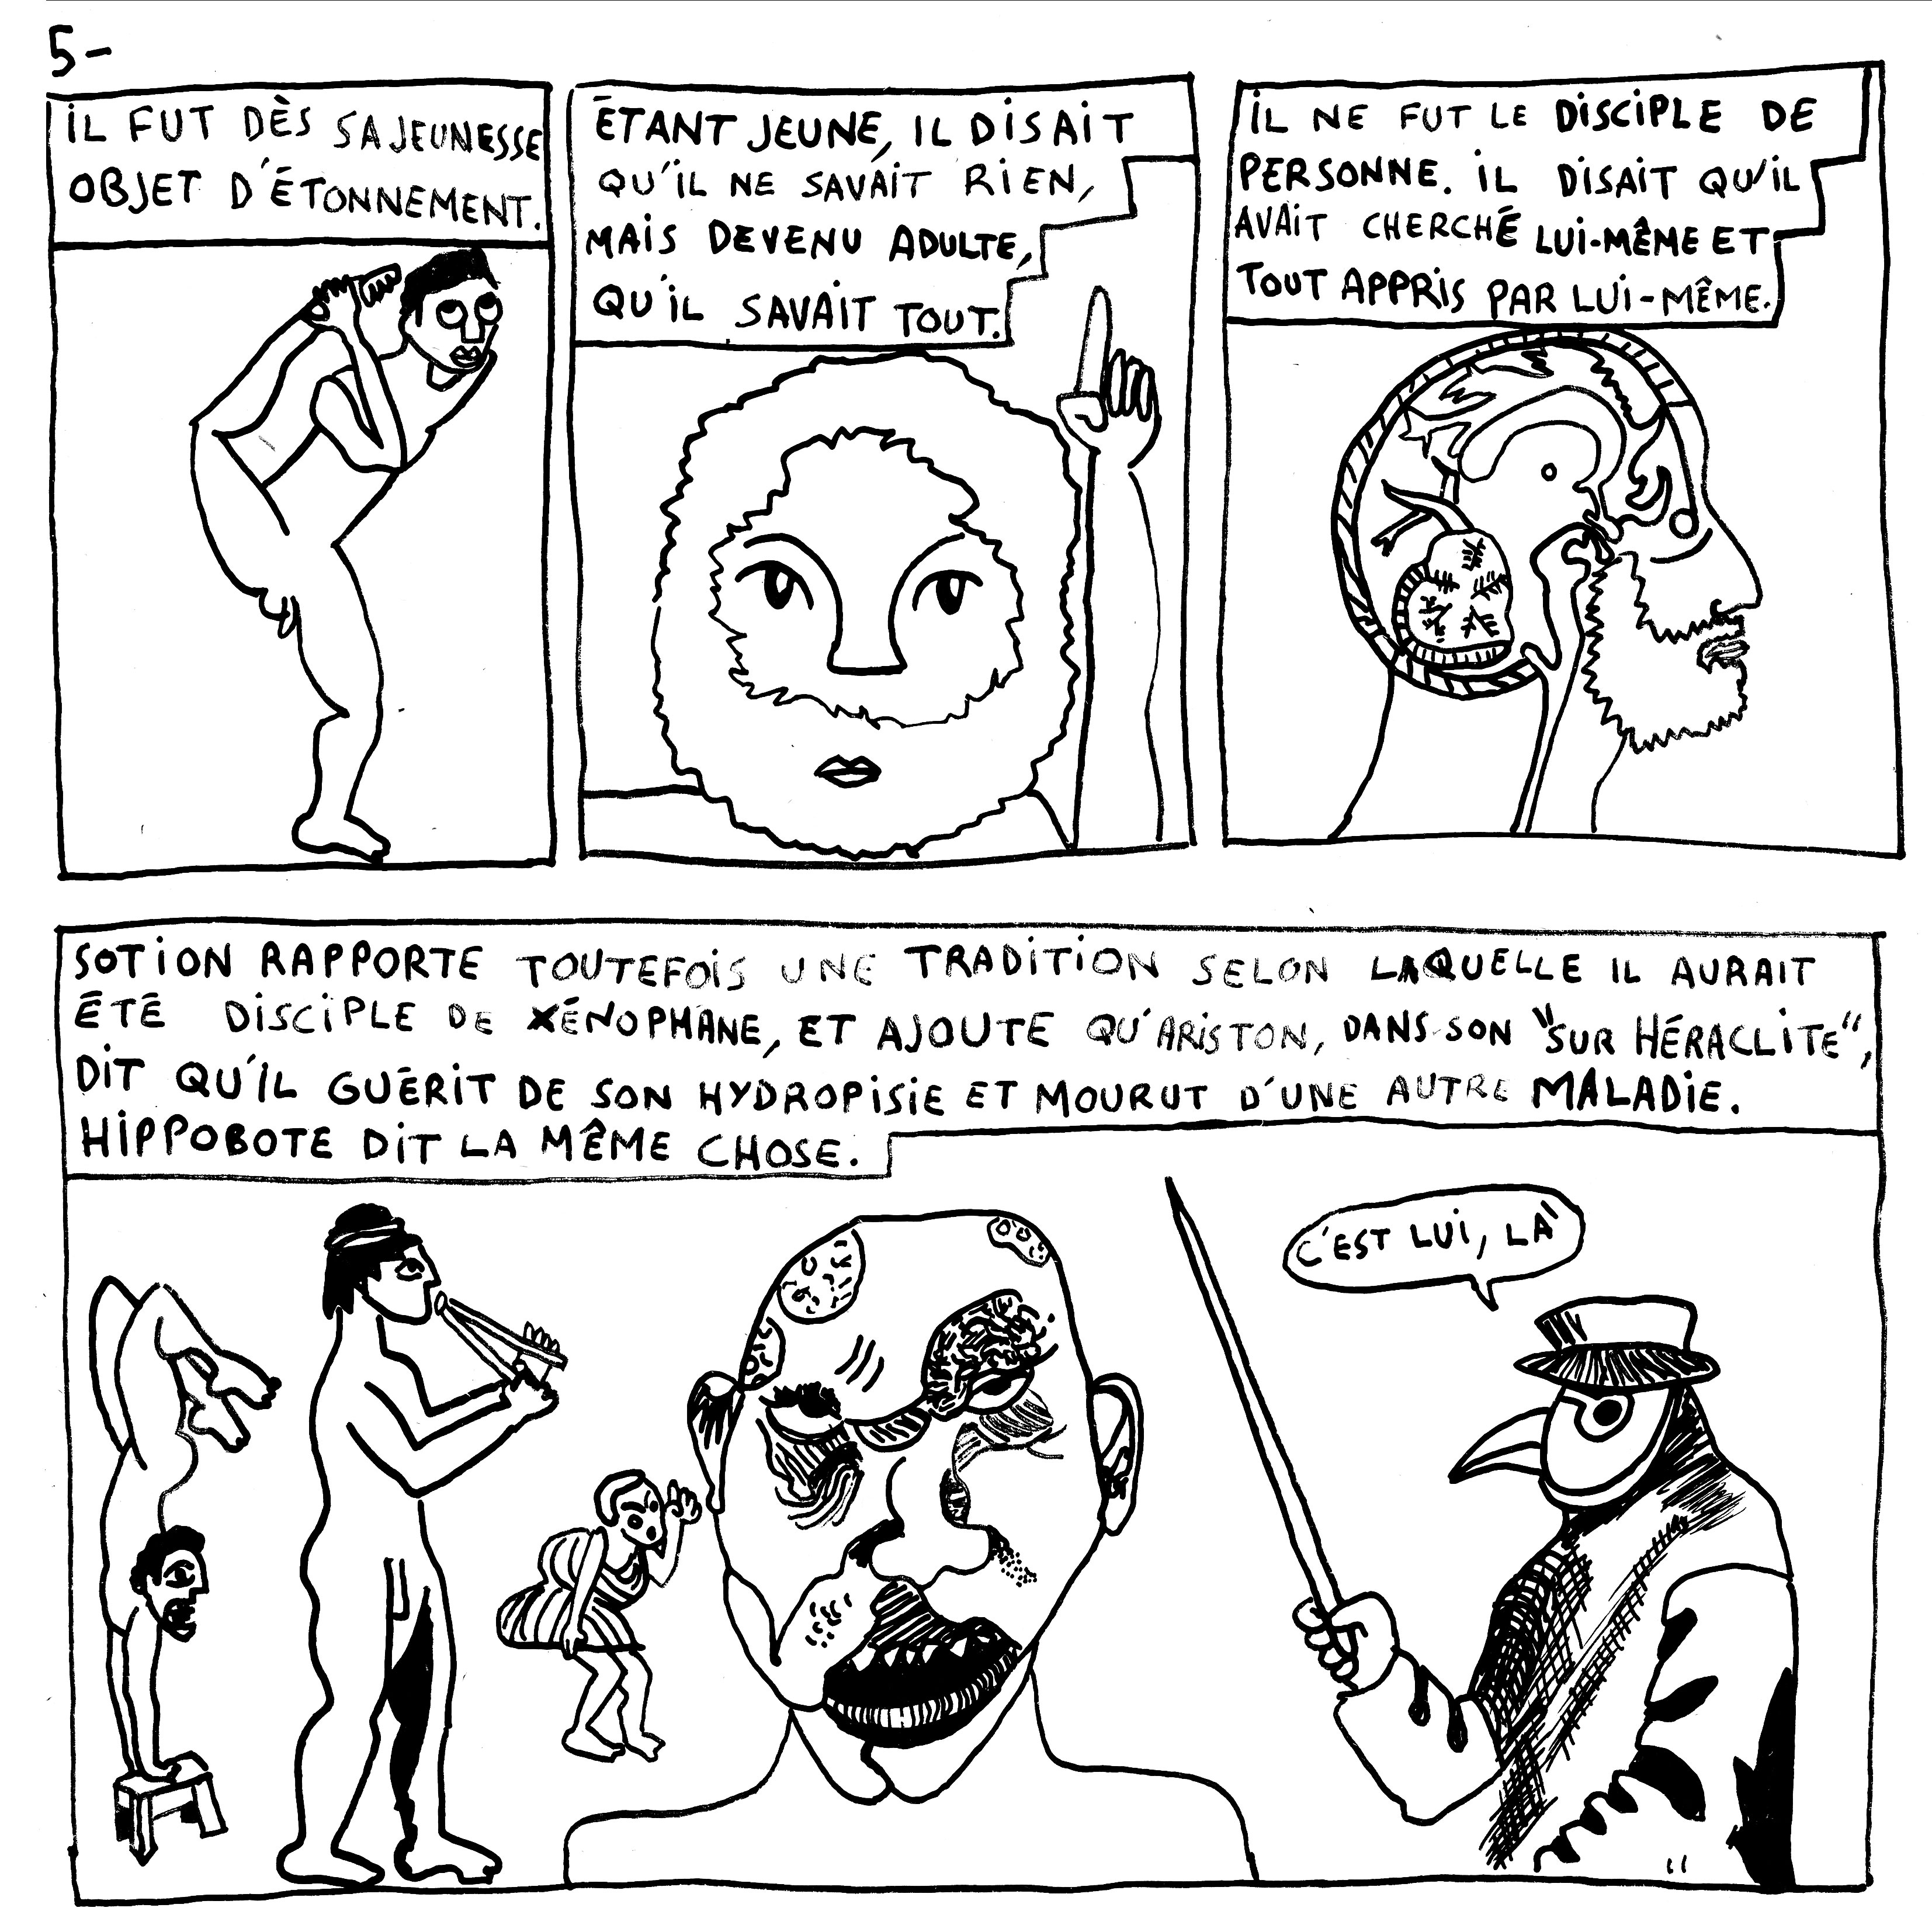 5-
IL FUT DÈS SA JEUNESSE
OBJET D'ÉTONNEMENT.
ÉTANT JEUNE, IL DISAIT
QU'IL NE SAVAIT RIEN,
MAIS DEVENU ADULTE,
QU'IL SAVAIT TOUT.
IL NE FUT LE DISCIPLE DE
PERSONNE. IL DISAIT QU'IL
AVAIT CHERCHÉ LUI-MÊME ET
TOUT APPRIS PAR LUI-MÊME.
SOTION RAPPORTE TOUTEFOIS UNE TRADITION SELON LAQUELLE IL AURAIT
ÉTÉ DISCIPLE DE XÉNOPHANE, ET AJOUTE QU'ARISTON, DANS SON "SUR HÉRACLITE",
DIT QU'IL GUÉRIT DE SON HYDROPISIE ET MOURUT D'UNE AUTRE MALADIE.
HIPPOBOTE DIT LA MÊME CHOSE.
C'EST LUI, LÀ